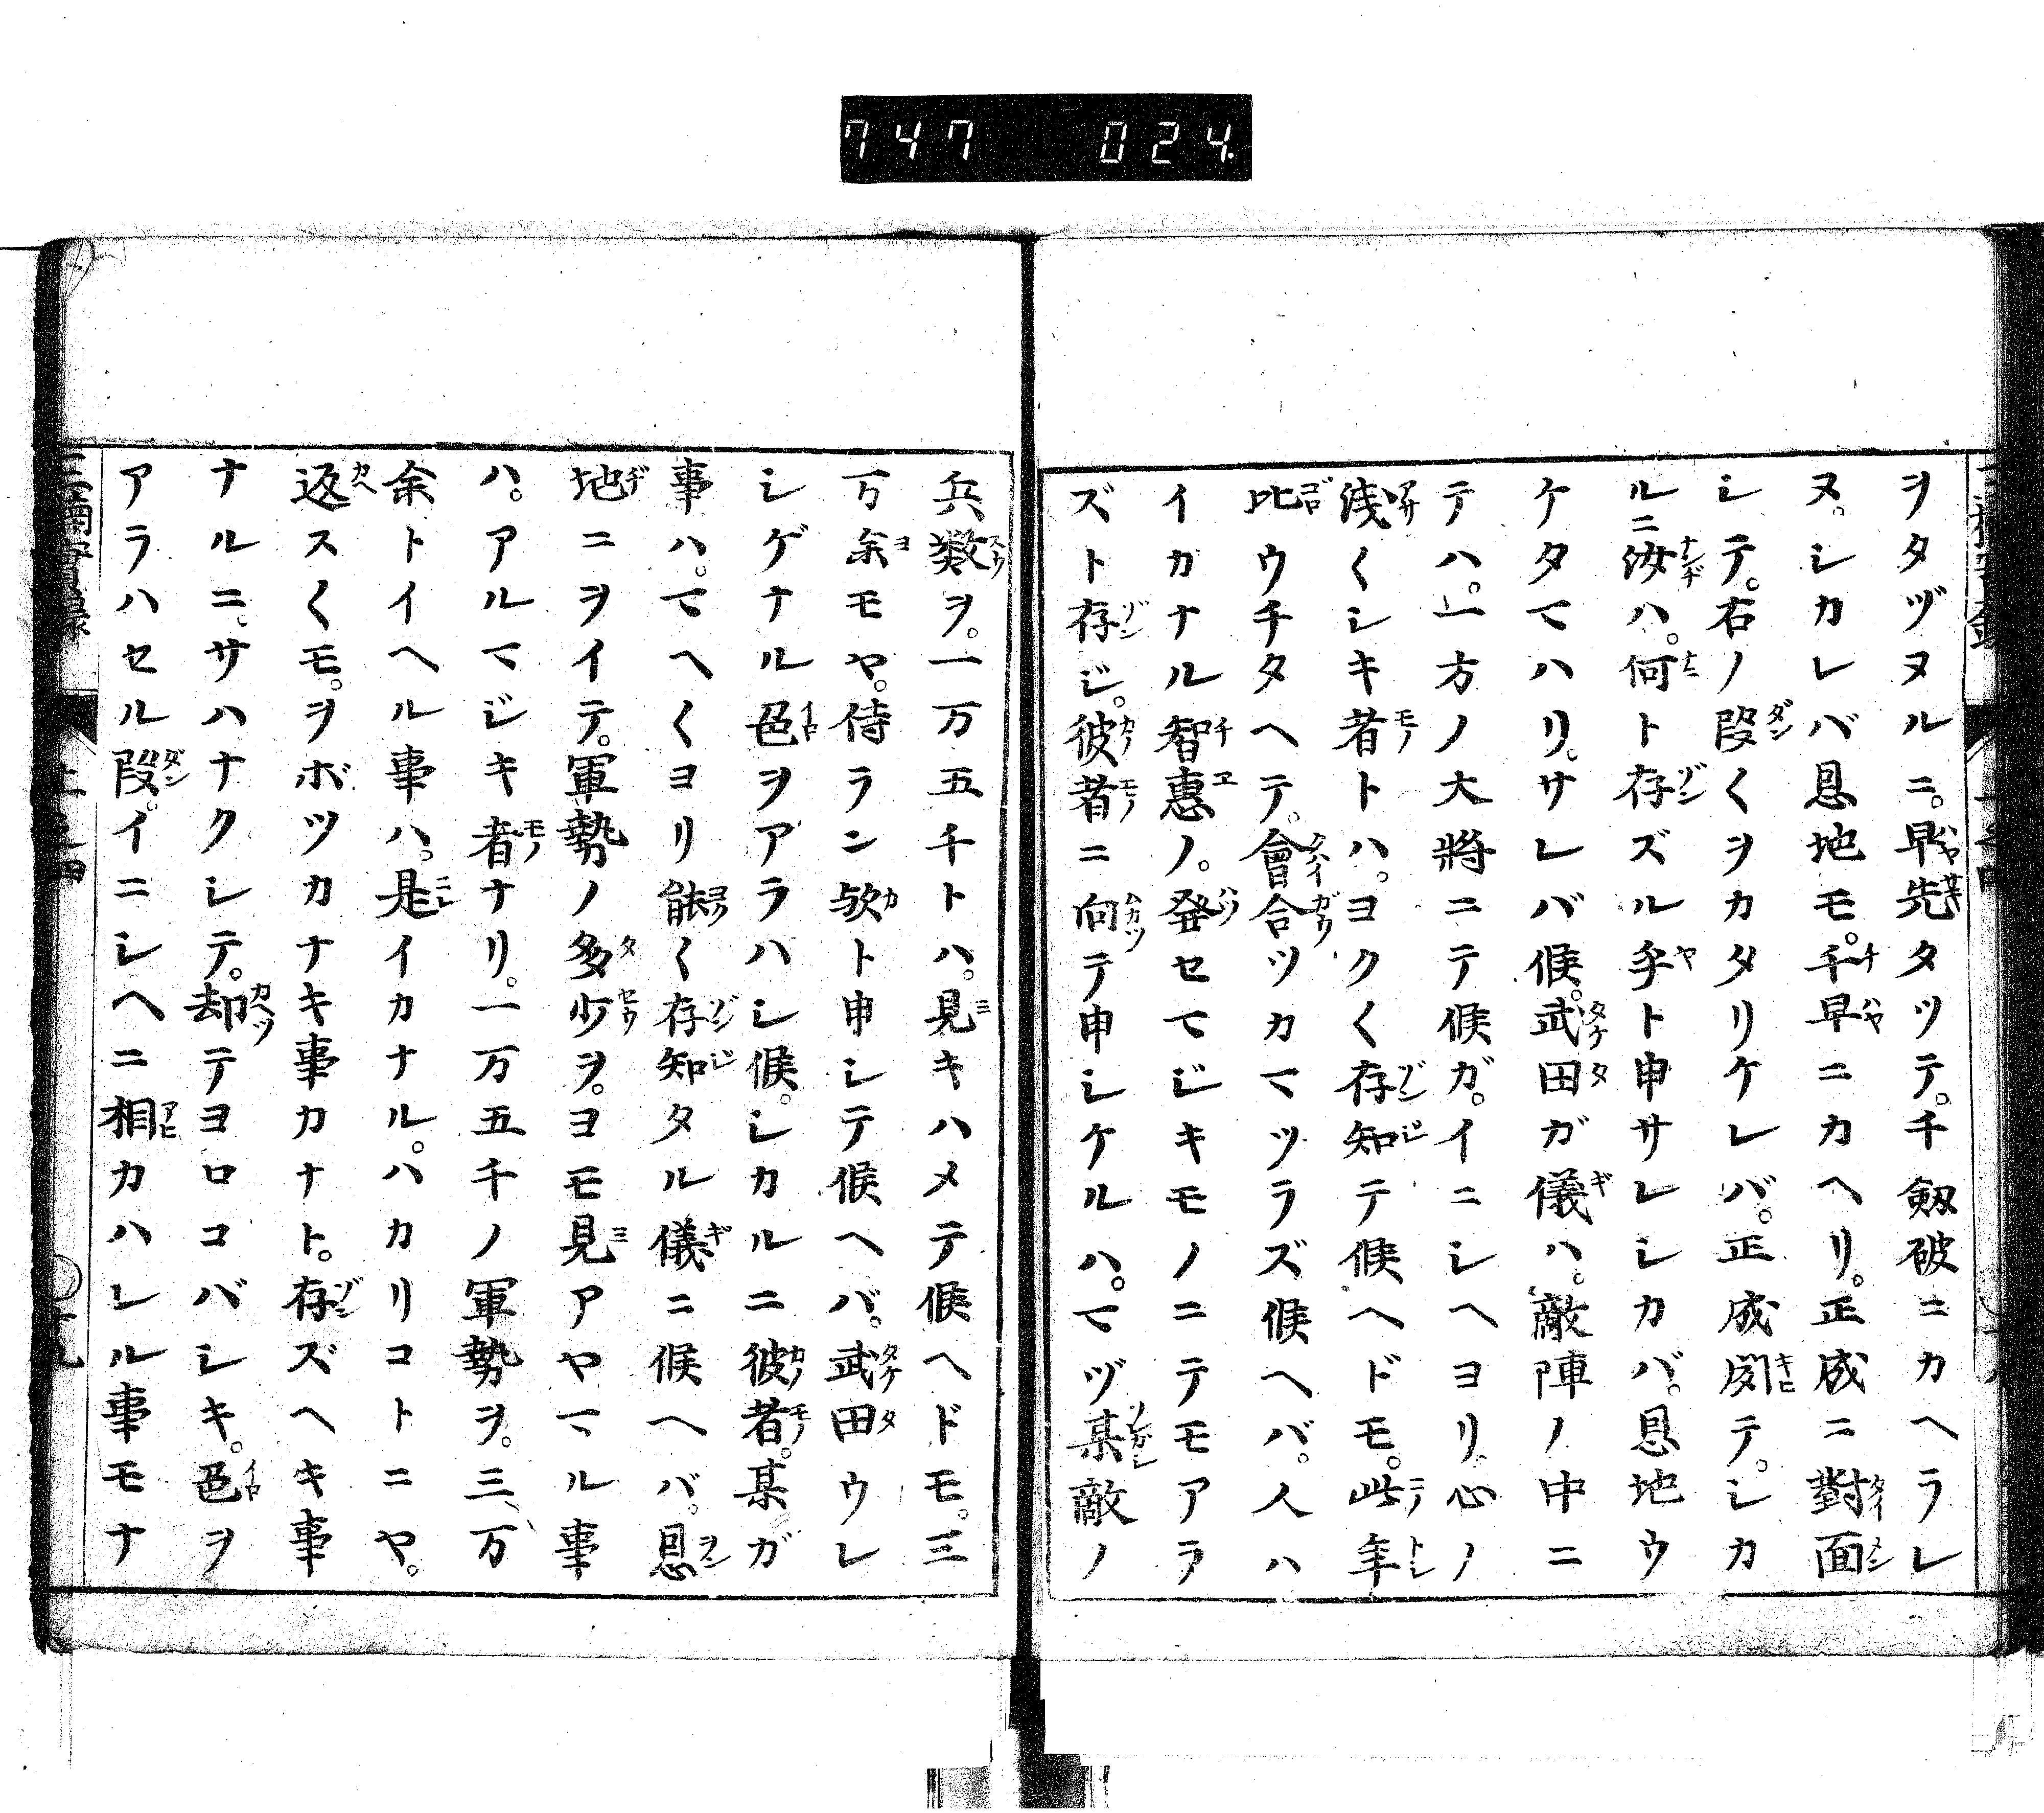 747 024
ヲタヅヌルニ。早先タツテ。千劔破ニカヘラレ
ヌ。シカレバ恩地モ。千早ニカヘリ。正成ニ對面
シテ。右ノ段〱ヲカタリケレバ。正成聞テ。シカ
ルニ汝ハ。何ト存ズル乎ト申サレシカバ。恩地ウ
ケタマハリ。サレバ候。武田ガ儀ハ。敵陣ノ中ニ
テハ。一方ノ大將ニテ候ガ。イニシヘヨリ心ノ
浅〱シキ者トハ。ヨク〱存知テ候ヘドモ。此年
比ウチタヘテ。會合ツカマツラズ候ヘバ。人ハ
イカナル智惠ノ。発セマジキモノニテモアラ
ズト存ジ。彼者ニ向テ申シケルハ。マヅ某敵ノ
兵数ヲ。一万五千トハ。見キハメテ候ヘドモ。三
万余モヤ。侍ラン欤ト申シテ候ヘバ。武田ウレ
シゲナル色ヲアラハシ候。シカルニ彼者。某ガ
事ハ。マヘ〱ヨリ能〱存知タル儀ニ候ヘバ。恩
地ニヲイテ。軍勢ノ多少ヲ。ヨモ見アヤマル事
ハ。アルマジキ者ナリ。一万五千ノ軍勢ヲ。三万
余トイヘル事ハ。是イカナル。ハカリコトニヤ。
返ス〱モ。ヲボツカナキ事カナト。存ズヘキ事
ナルニ。サハナクシテ。却テヨロコバシキ。色ヲ
アラハセル段。イニシヘニ相カハレル事モナ
上之四 十九